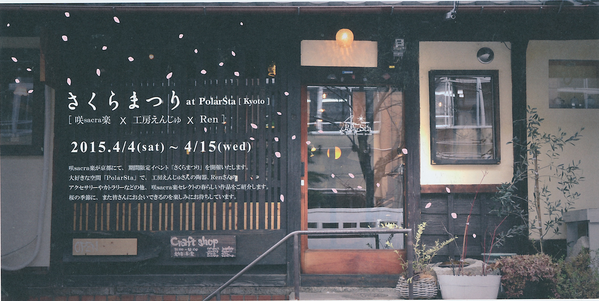 さくらまつり at PolarSta [ Kyoto ]
[ 咲sacra楽 × 工房えんじゅ × Ren ]
2015.4/4(sat) ~ 4/15(wed)
咲sacra楽が京都にて、期間限定イベント「さくらまつり」を開催いたします。
大好きな空間「PolarSta」で、工房えんじゅさんの陶器、Renさんの
アクセサリーやカトラリーなどの他、咲sacra楽セレクトの春らしい作品をご紹介します。
桜の季節に、また皆さんにお会いできるのを楽しみにお待ちしています。
Craft shop